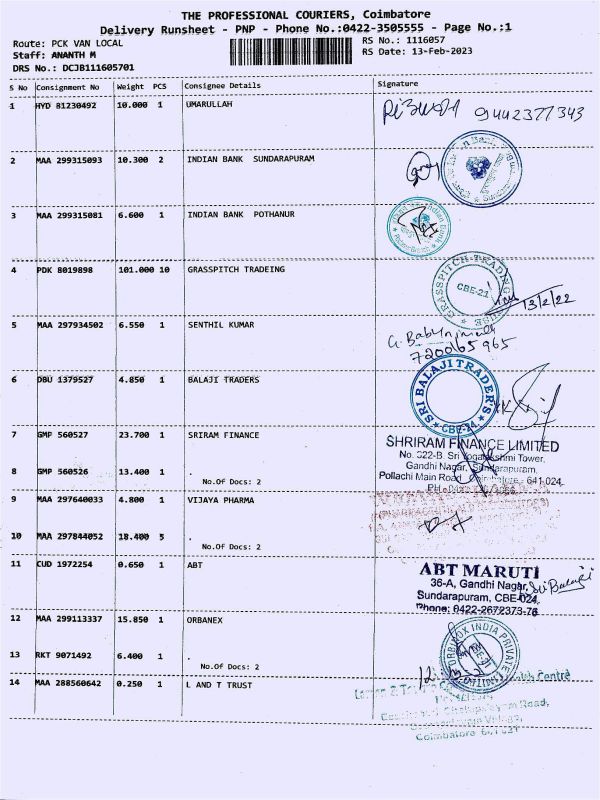 THE PROFESSIONAL COURIERS, Coimbatore
Delivery Runsheet - PNP - Phone No.:0422-3505555 - Page No.:1
Route: PCK VAN LOCAL
RS No.: 1116057
Staff: ANANTH M
RS Date: 13-Feb-2023
DRS No.: DCJB111605701
S No Consignment No Weight PCS Consignee Details Signature
1 HYD 81230492 10.000 1 UMARULLAH
9442377343
2 MAA 299315093 10.300 2 INDIAN BANK SUNDARAPURAM
3 MAA 299315081 6.600 1 INDIAN BANK POTHANUR
4 PDK 8019898 101.000 10 GRASSPITCH TRADEING
GRASSPITCH TRADING
CBE-21
13/2/22
5 MAA 297934502 6.550 1 SENTHIL KUMAR
7200165965
6 DBU 1379527 4.850 1 BALAJI TRADERS
SRI BALAJI TRADER'S
CBE-24
7 GMP 560527 23.700 1 SRIRAM FINANCE
SHRIRAM FINANCE LIMITED
No. 322-B. Sri Yogalakshmi Tower,
Gandhi Nagar, Sundarapuram,
Pollachi Main Road, Coimbatore - 641 024.
8 GMP 560526 13.400 1 .
No.Of Docs: 2
9 MAA 297640033 4.800 1 VIJAYA PHARMA
10 MAA 297844052 18.400 5 .
No.Of Docs: 2
11 CUD 1972254 0.650 1 ABT
ABT MARUTI
36-A, Gandhi Nagar,
Sundarapuram, CBE-024.
Phone: 0422-2672373-76
12 MAA 299113337 15.850 1 ORBANEX
ORBANOX INDIA PRIVATE
13 RKT 9071492 6.400 1 .
No.Of Docs: 2
14 MAA 288560642 0.250 1 L AND T TRUST
Health Centre
Road,
Coimbatore 641 021